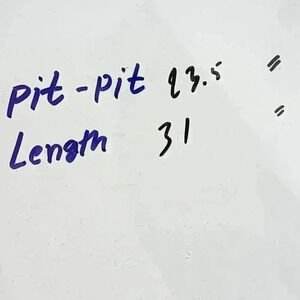 pit-pit 23.5 "
Length 31 "